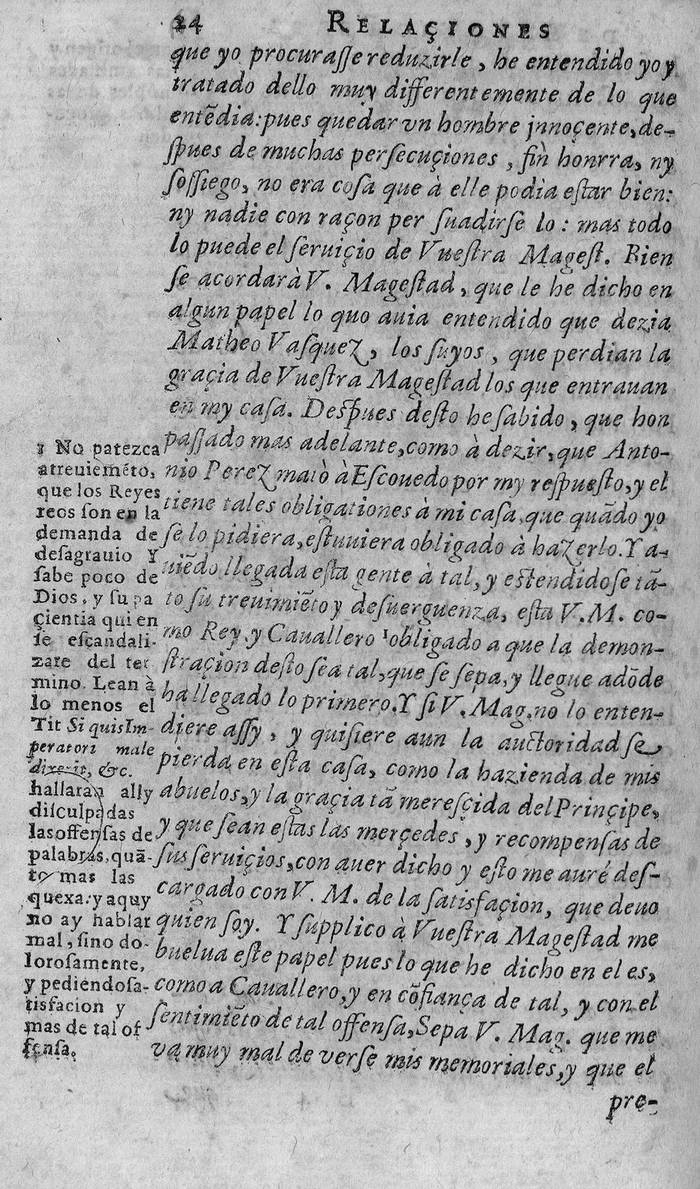 24 RELAÇIONES
que yo procuraſſe reduzirle, he entendido yo y
tratado dello muy differentemente de lo que
entẽdia: pues quedar vn hombre jnnoçente, de-
ſpues de muchas perſecuçiones, ſin honrra, ny
ſoſſiego, no era coſa que à elle podia eſtar bien:
ny nadie con raçon per ſuadirſe lo: mas todo
lo puede el ſeruiçio de Vueſtra Mageſt. Bien
ſe acordarà V. Mageſtad, que le he dicho en
algun papel lo quo auia entendido que dezia
Matheo Vaſquez, los ſuyos, que perdian la
graçia de Vueſtra Mageſtad los que entrauan
en my caſa. Deſpues deſto he ſabido, que hon
paſſado mas adelante, como à dezir, que Anto-
nio Perez matò à Eſcouedo por my reſpuesto, y el
tiene tales obligationes à mi caſa, que quãdo yo
ſe lo pidiera, eſtuuiera obligado à hazerlo. Y a-
uiẽdo llegada eſta gente à tal, y eſtendidoſe tã-
to ſu treuimiẽto y deſuerguenza, eſta V. M. co-
mo Rey, y Cauallero ¹obligado a que la demon-
ſtraçion deſto ſea tal, que ſe ſepa, y llegue adõde
ha llegado lo primero. Y ſi V. Mag. no lo enten-
diere aſſy, y quiſiere aun la auctoridad ſe
pierda en eſta caſa, como la hazienda de mis
abuelos, y la graçia tã mereſcida del Prinçipe,
y que ſean eſtas las merçedes, y recompenſas de
ſus ſeruiçios, con auer dicho y eſto me auré deſ-
cargado con V. M. de la ſatisfaçion, que deuo
quien ſoy. Y ſupplico à Vueſtra Mageſtad me
buelua eſte papel pues lo que he dicho en el es,
como a Cauallero, y en cõfiança de tal, y con el
ſentimiẽto de tal offenſa, Sepa V. Mag. que me
va muy mal de verſe mis memoriales, y que el
pre-
1 No patezca
atreuiemẽto,
que los Reyes
reos ſon en la
demanda de
deſagrauio Y
ſabe poco de
Dios, y ſu pa
çientia quien
ſe eſcandali-
zare del ter
mino. Lean à
lo menos el
Tit Si quis Im-
peratori male
dixerit, &c.
hallaran ally
diſculpadas
las offenſas de
palabras, quã-
to mas las
quexa: y aquy
no ay hablar
mal, ſino do-
loroſamente,
y pediẽndoſa-
tisfacion y
mas de tal of
fenſa.